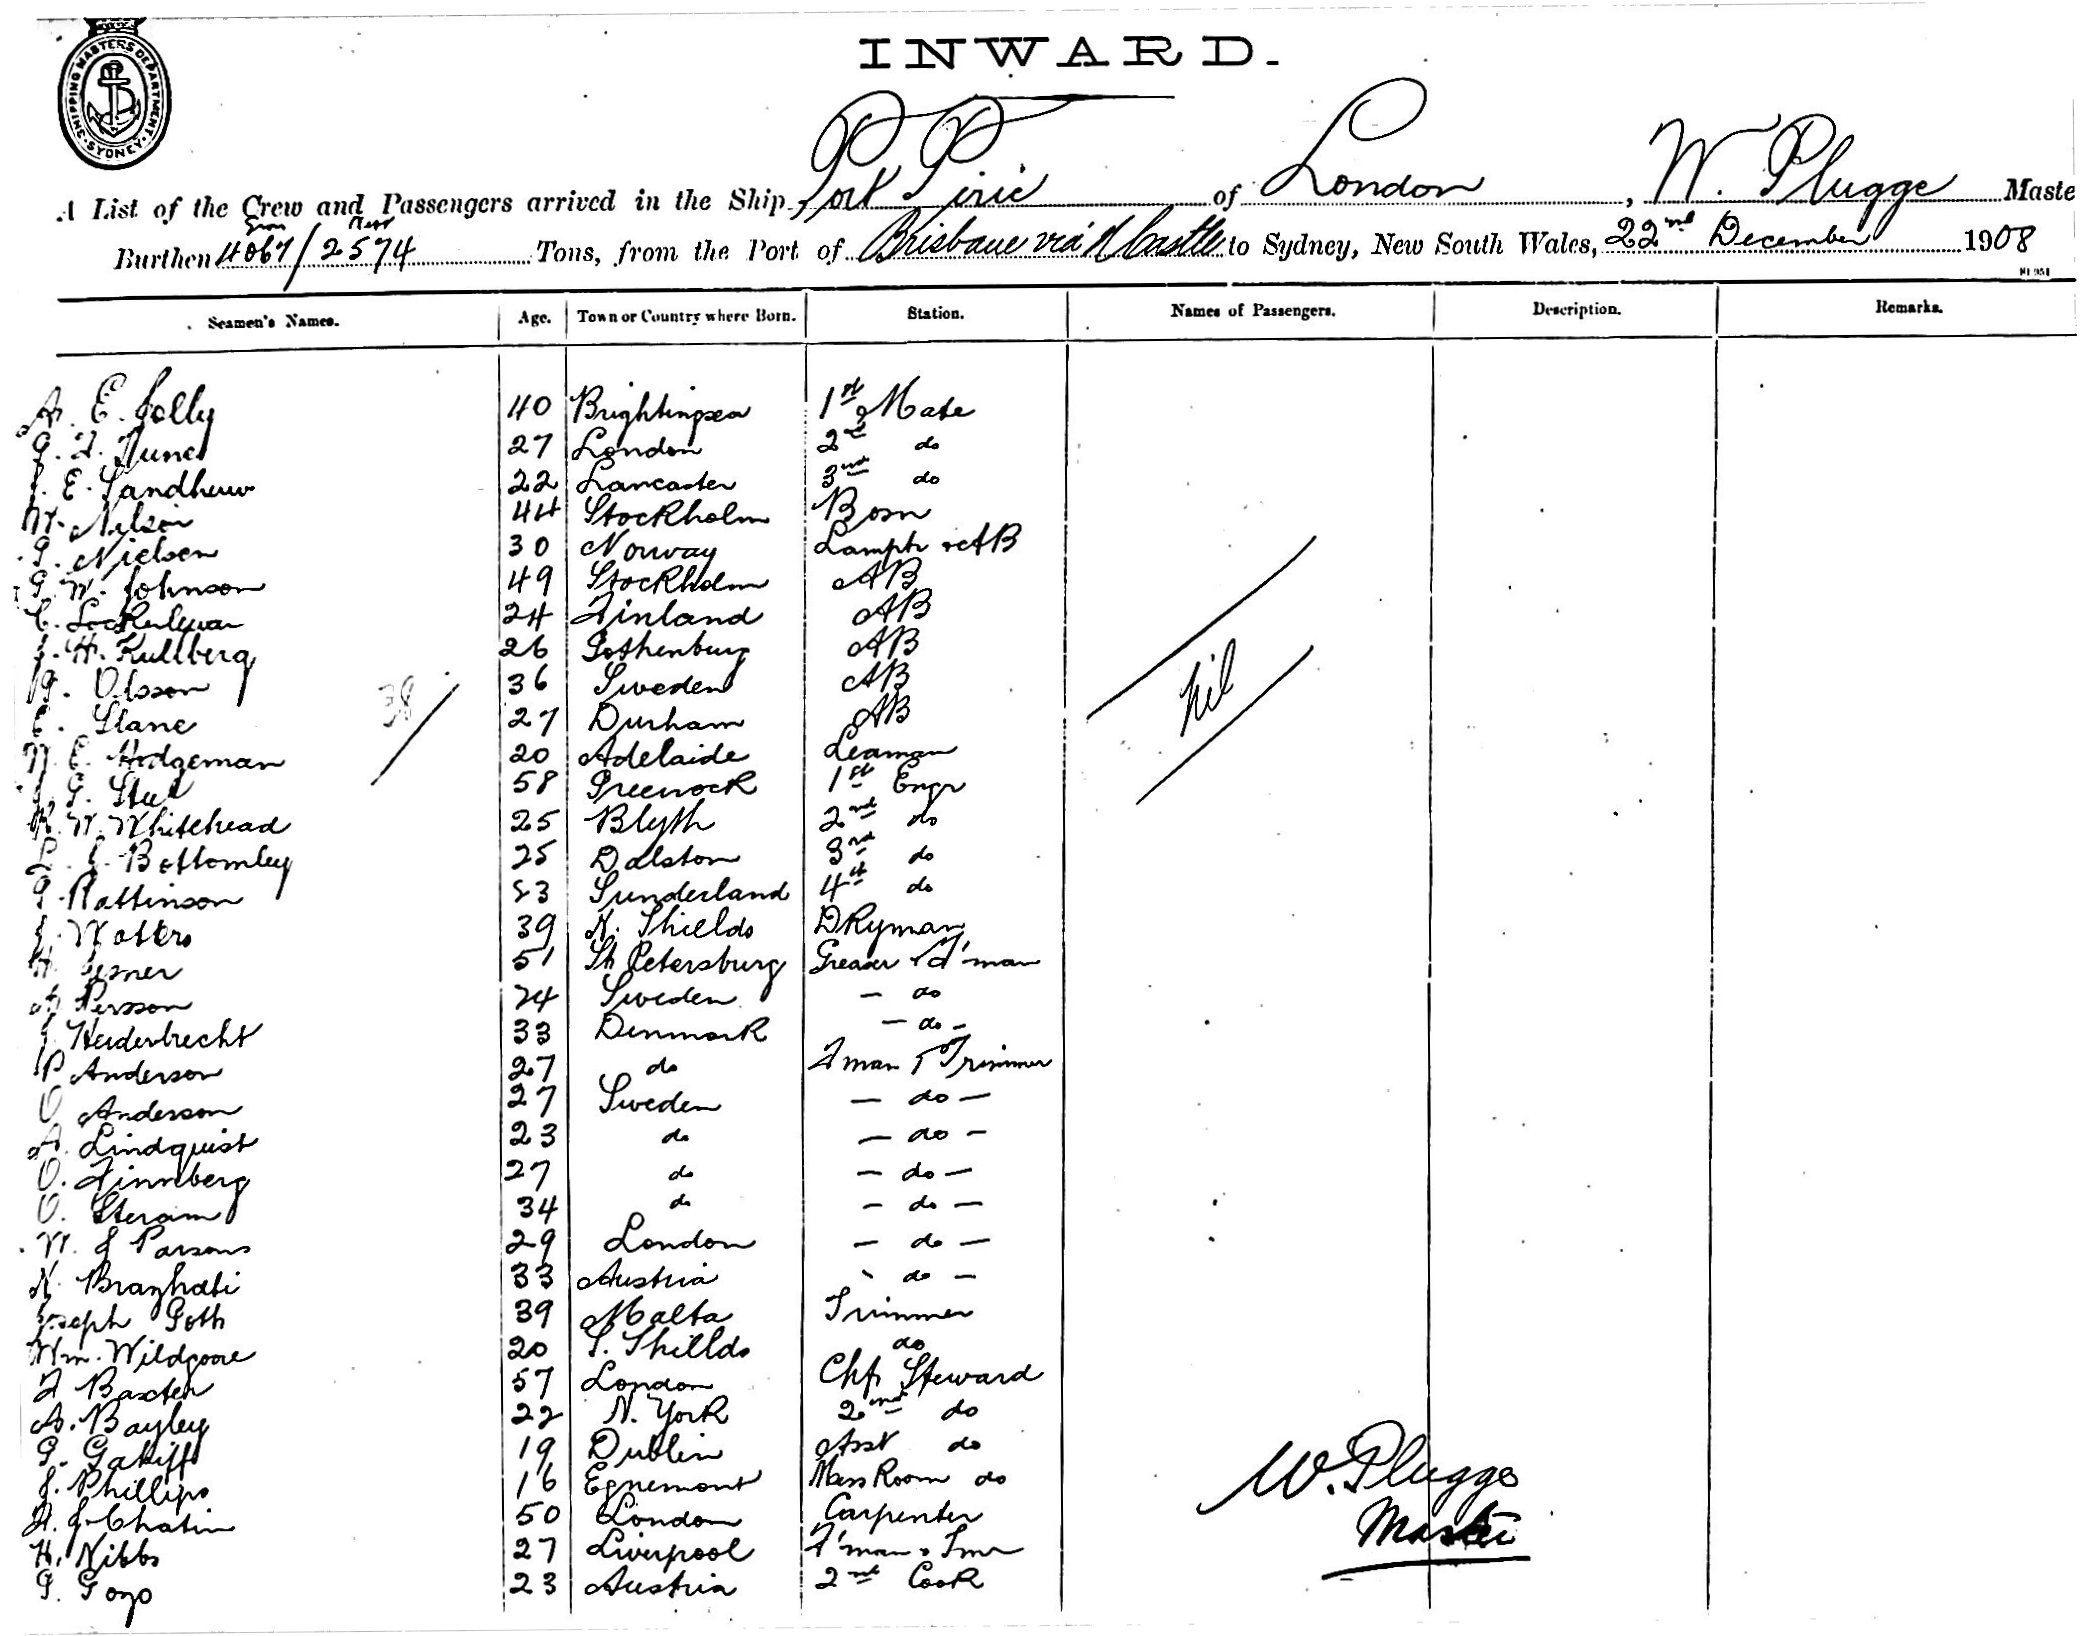 SHIPPING MASTERS DEPARTMENT SYDNEY
INWARD.
A List of the Crew and Passengers arrived in the Ship Port Pirie of London, W. Plugge Maste
Gross Nett
Burthen 4067/2574 Tons, from the Port of Brisbane via N Castle to Sydney, New South Wales, 22nd December 1908
Seamen's Names. Age. Town or Country where Born. Station. Names of Passengers. Description. Remarks.
A. E. Jolly 40 Brightingsea 1st Mate
27 London 2nd do
E. 22 Lancaster 3rd do
Nelson 44 Stockholm Bosn
Nielsen 30 Norway Lamptr & AB
G. W. Johnson 49 Stockholm AB
C. 24 Finland AB
J. H. Kullberg 26 Gothenburg AB
G. Olsson 36 Sweden AB
38
C. Slane 27 Durham AB
nil
E. Hodgeman 20 Adelaide Seaman
G. Steel 58 Greenock 1st Engr
R. W. Whitehead 25 Blyth 2nd do
L. J. Bottomley 25 Dalston 3rd do
Pattinson 23 Sunderland 4th do
J. Watters 39 N. Shields DKyman
H. 51 St Petersburg Greaser & F'man
Persson 24 Sweden - do
Heiderbrecht 33 Denmark - do -
P Anderson 27 do Fman & Trimmer
O Anderson 27 Sweden - do -
A. Lindquist 23 do - do -
O. Finnberg 27 do - do -
O. 34 do - do -
W. J Parsons 29 London - do -
N. 33 Austria - do -
Joseph Goth 39 Malta Trimmer
Wm. Wildgoose 20 S. Shillds do
F Baxter 57 London Chf Steward
A. Bayley 22 N. York 2nd do
G. 19 Dublin Asst do
J. Phillips 16 Egremont Mess Room do
J. Chatin 50 London Carpenter
H. Nibbs 27 Liverpool F'man & Tmr
G. Gozo 23 Austria 2nd Cook
W. Plugge
Master